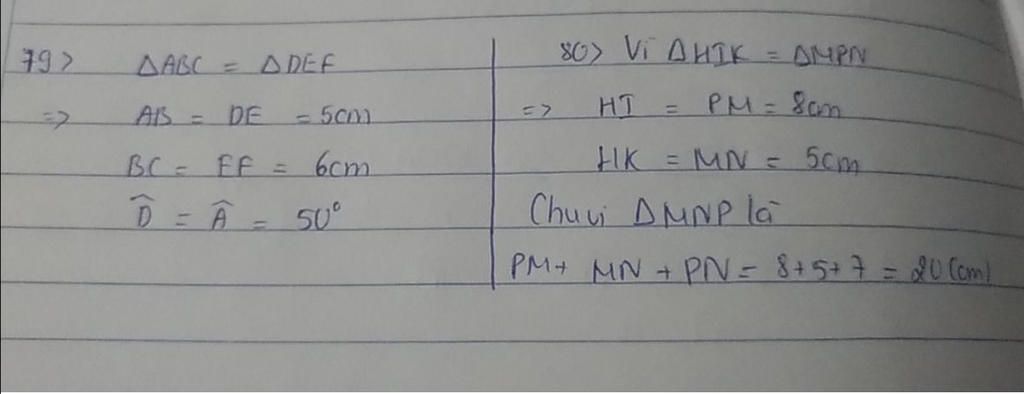 79> ΔABC = ΔDEF
=> AB = DE = 5cm
BC = EF = 6cm
D̂ = Â = 50°
80> Vì ΔHIK = ΔMPN
=> HI = PM = 8cm
HK = MN = 5cm
Chu vi ΔMNP là
PM + MN + PN = 8+5+7 = 20 (cm)